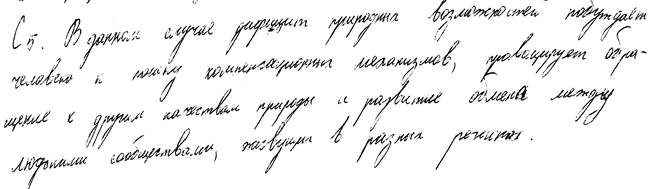 С5. В данном случае дефицит природных возможностей побуждает
человека к поиску компенсационных механизмов, провоцирует обра-
щение к другим качествам природы и развитие обмена между
людскими сообществами, живущими в разных регионах.